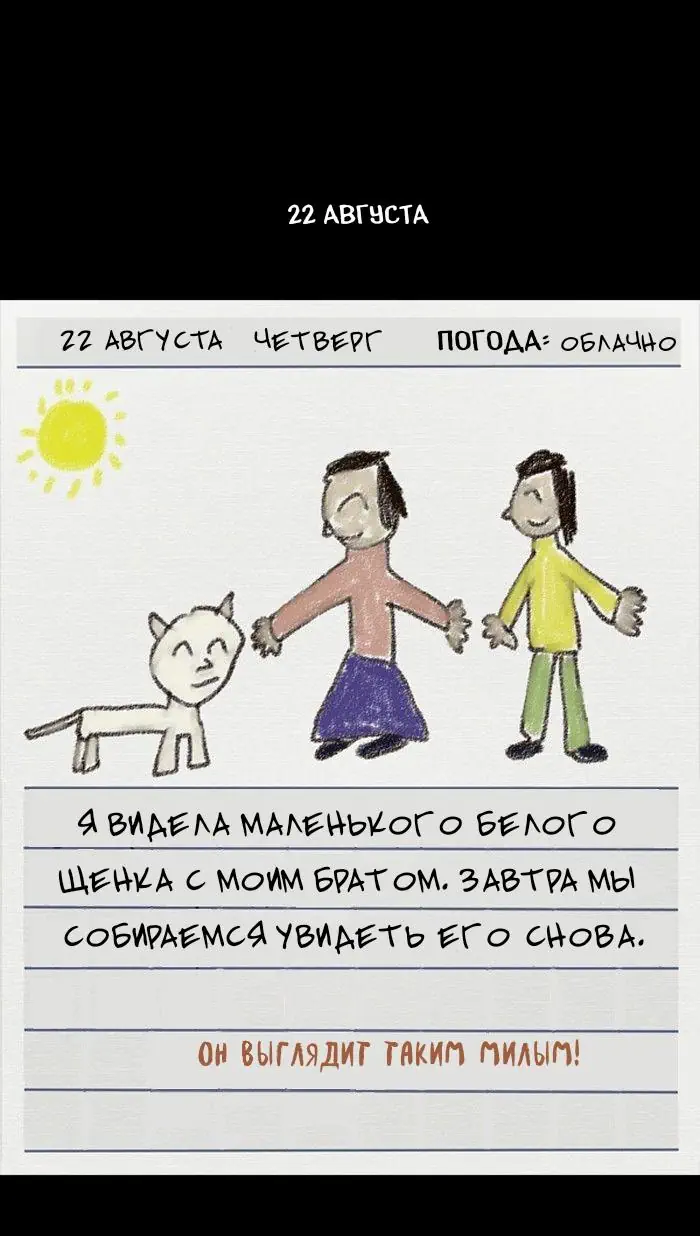 22 АВГУСТА
22 АВГУСТА ЧЕТВЕРГ ПОГОДА: ОБЛАЧНО
Я ВИДЕЛА МАЛЕНЬКОГО БЕЛОГО
ЩЕНКА С МОИМ БРАТОМ. ЗАВТРА МЫ
СОБИРАЕМСЯ УВИДЕТЬ ЕГО СНОВА.
ОН ВЫГЛЯДИТ ТАКИМ МИЛЫМ!